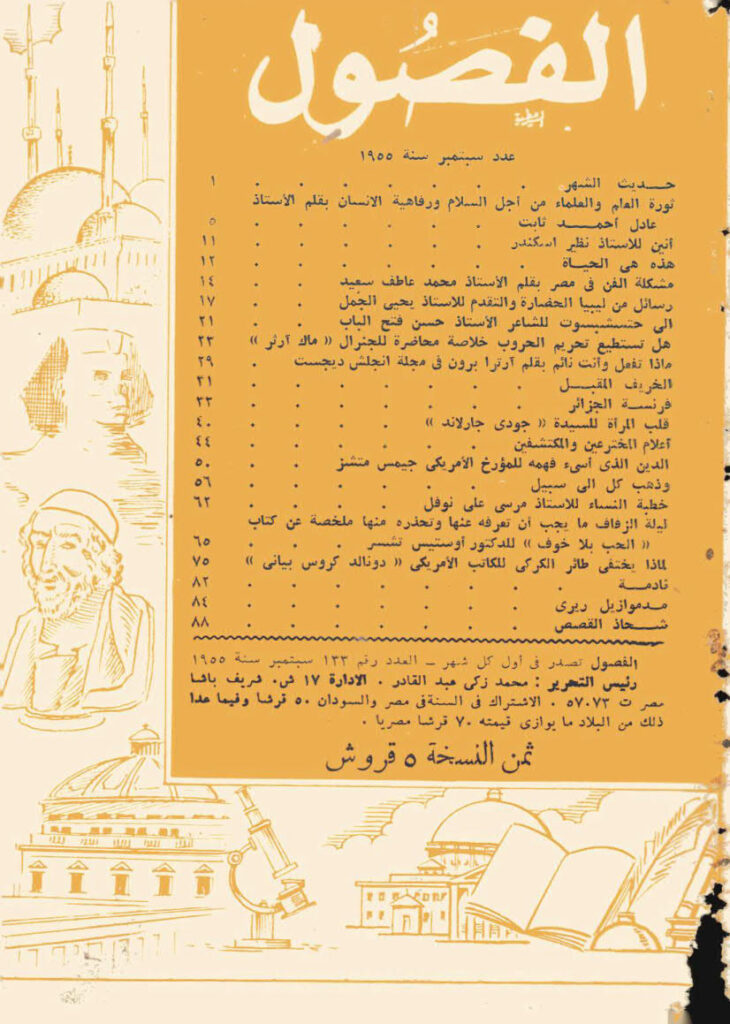 الفصول
عدد سبتمبر سنة ١٩٥٥
حـــديث الشهر . . . . . . . ١
ثورة العلم والعلماء من أجل السلام ورفاهية الانسان بقلم الأستاذ
عادل أحمـــد ثابت . . . . . . ٥
أنين للاستاذ نظير اسكندر . . . . . . ١١
هذه هى الحيـاة . . . . . . . ١٢
مشكلة الفن فى مصر بقلم الأستاذ محمد عاطف سعيد . . ١٤
رسائل من ليبيا الحضارة والتقدم للاستاذ يحيى الجمل . . ١٧
الى حتشبسوت للشاعر الأستاذ حسن فتح الباب . . ٢١
هل تستطيع تحريم الحروب خلاصة محاضرة للجنرال « ماك آرثر » ٢٣
ماذا تفعل وأنت نائم بقلم آرثرا برون فى مجلة انجلش ديجست . ٢٩
الخريف المقبـــل . . . . . . . ٣١
فرنســة الجزائر . . . . . . . ٣٣
قلب المرأة للسيدة « جودى جارلاند » . . . . ٤٠
أعلام المخترعين والمكتشفين . . . . . . ٤٤
الدين الذى أسىء فهمه للمؤرخ الأمريكى جيمس متشنز . . ٥٠
وذهب كل الى سبيل . . . . . . ٥٦
خطبة النساء للاستاذ مرسى على نوفل . . . . ٦٢
ليلة الزفاف ما يجب أن تعرفه عنها وتحذره منها ملخصة عن كتاب
« الحب بلا خوف » للدكتور أوستيس تشسر . . . ٦٥
لماذا يختفى طائر الكركى للكاتب الأمريكى « دونالد كروس بيانى » ٧٥
نادمـــة . . . . . . . . ٨٢
مـدموازيل ريرى . . . . . . . ٨٤
شـــحاذ القصص . . . . . . . ٨٨
الفصول تصدر فى أول كل شهر ــ العدد رقم ١٣٣ سبتمبر سنة ١٩٥٥
رئيس التحرير : محمد زكى عبد القادر . الادارة ١٧ ش. شريف باشا
مصر ت ٥٧٠٧٣ . الاشتراك فى السنةفى مصر والسودان ٥٠ قرشا وفيما عدا
ذلك من البلاد ما يوازى قيمته ٧٠ قرشا مصريا .
ثمن النسخة ٥ قروش